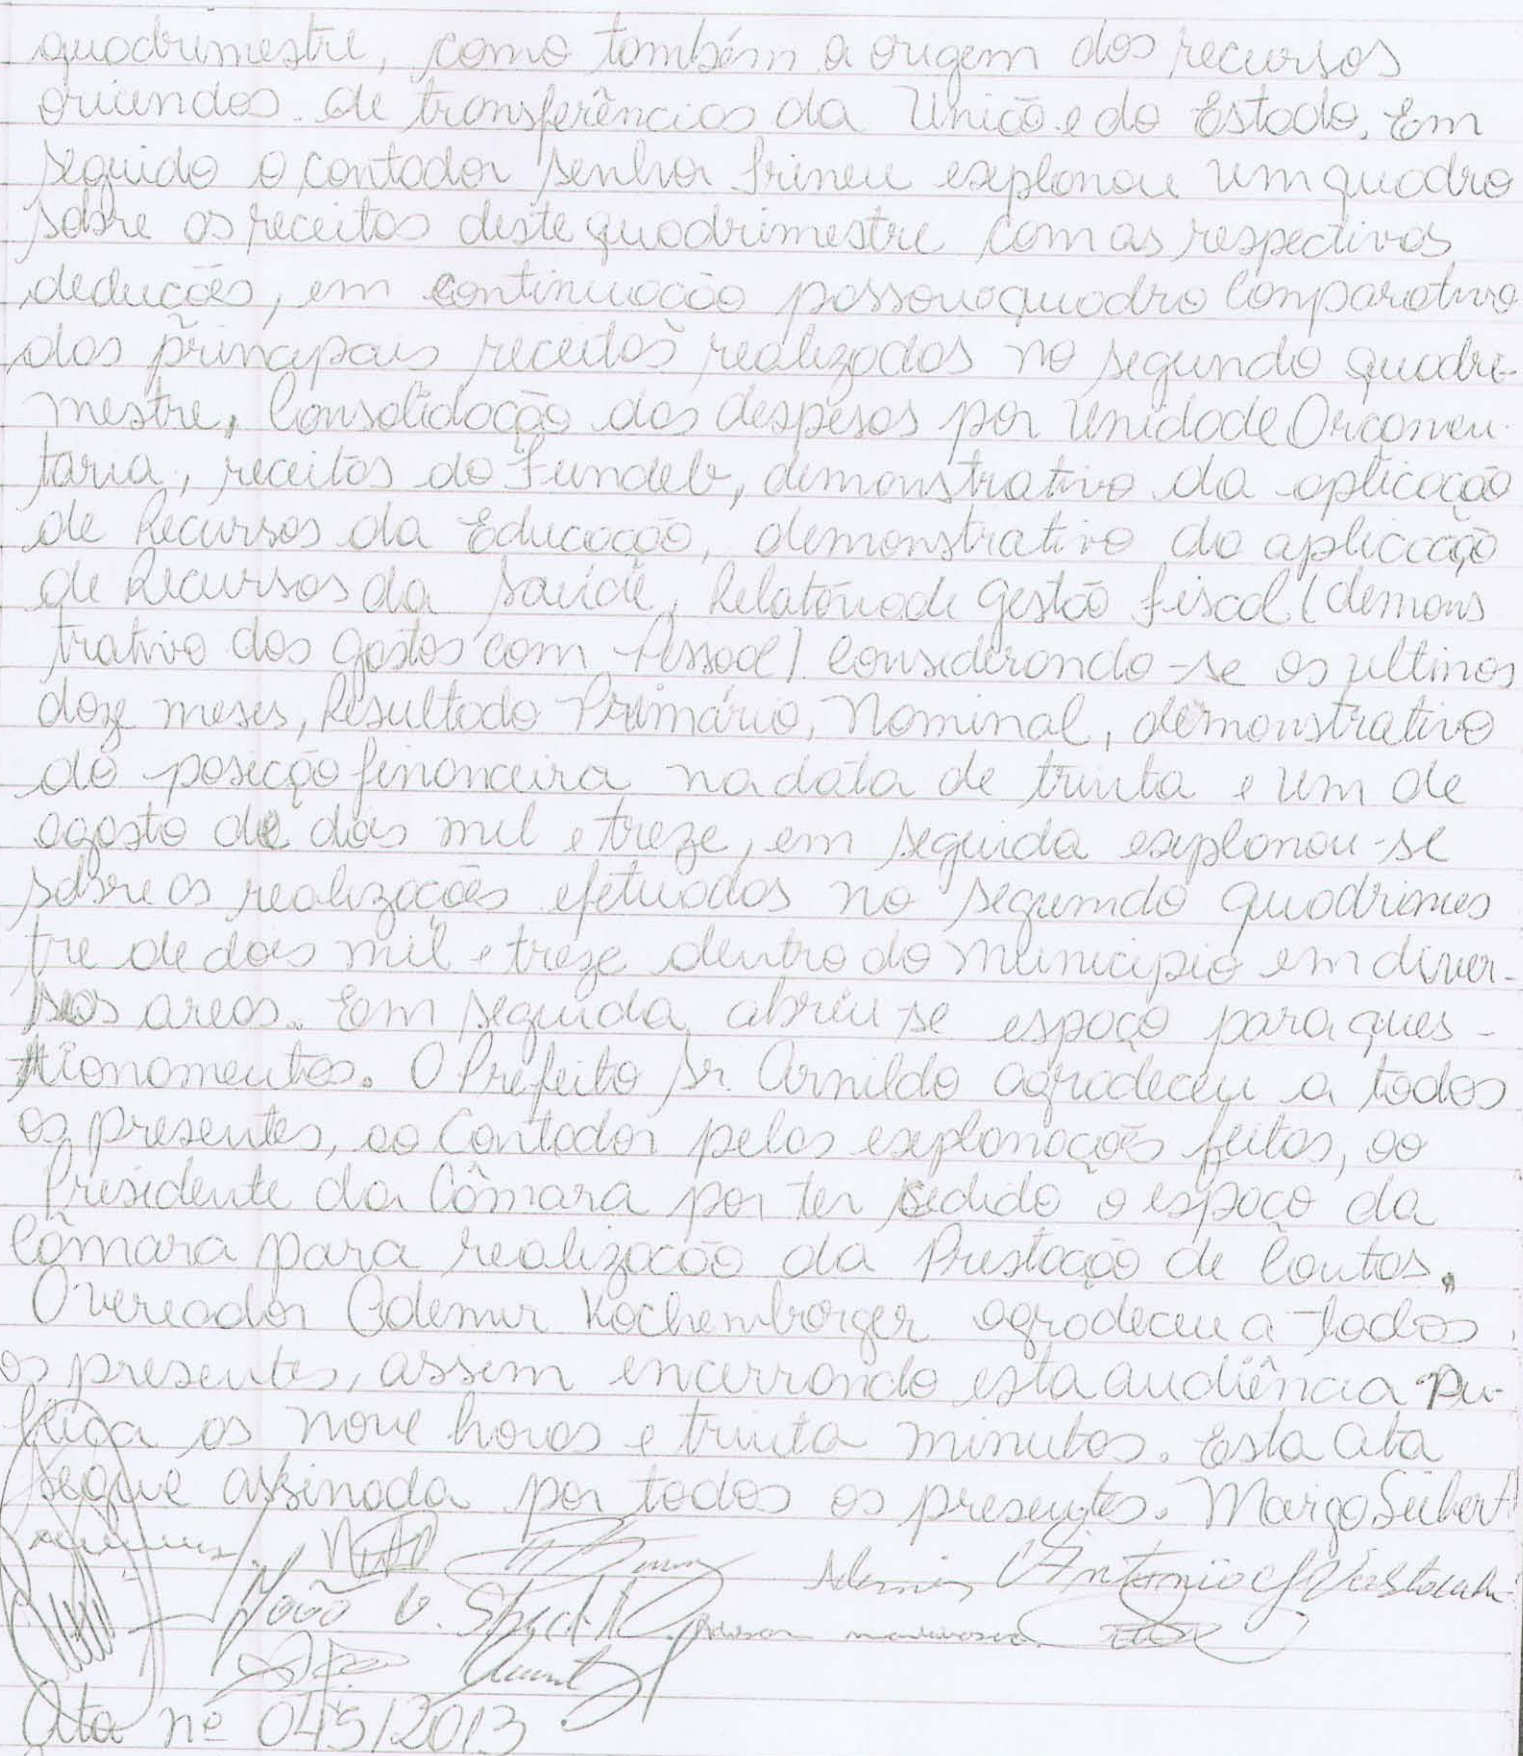 quadrimestre, como também a origem dos recursos
oriundos de transferências da União e do Estado. Em
seguida o contador senhor Irineu explanou um quadro
sobre as receitas deste quadrimestre com as respectivas
deduções, em continuação passou o quadro Comparativo
das principais receitas realizadas no segundo quadri-
mestre, Consolidação das despesas por Unidade Orçamen-
taria, receitas do Fundeb, demonstrativo da aplicação
de Recursos da Educação, demonstrativo da aplicação
de Recursos da Saúde, Relatório de Gestão Fiscal (demons
trativo dos gastos com Pessoal) Considerando-se os ultimos
doze meses, Resultado Primário, Nominal, demonstrativo
da posição financeira na data de trinta e um de
agosto de dois mil e treze, em seguida explanou-se
sobre as realizações efetuadas no segundo quadrimes
tre de dois mil e treze dentro do Municipio em diver-
sas areas. Em seguida abriu-se espaço para ques-
tionamentos. O Prefeito Sr. Arnildo agradeceu a todos
os presentes, ao Contador pelas explanações feitas, ao
Presidente da Câmara por ter sedido o espaço da
Câmara para realização da Prestação de Contas.
O vereador Ademir Kochemborger agradeceu a todos
os presentes, assim encerrando esta audiência pu-
bliça as nove horas e trinta minutos. Esta ata
segue assinada por todos os presentes. Margo Seibert
Ademir Antonio
João V. Specht
Ata nº 045/2013